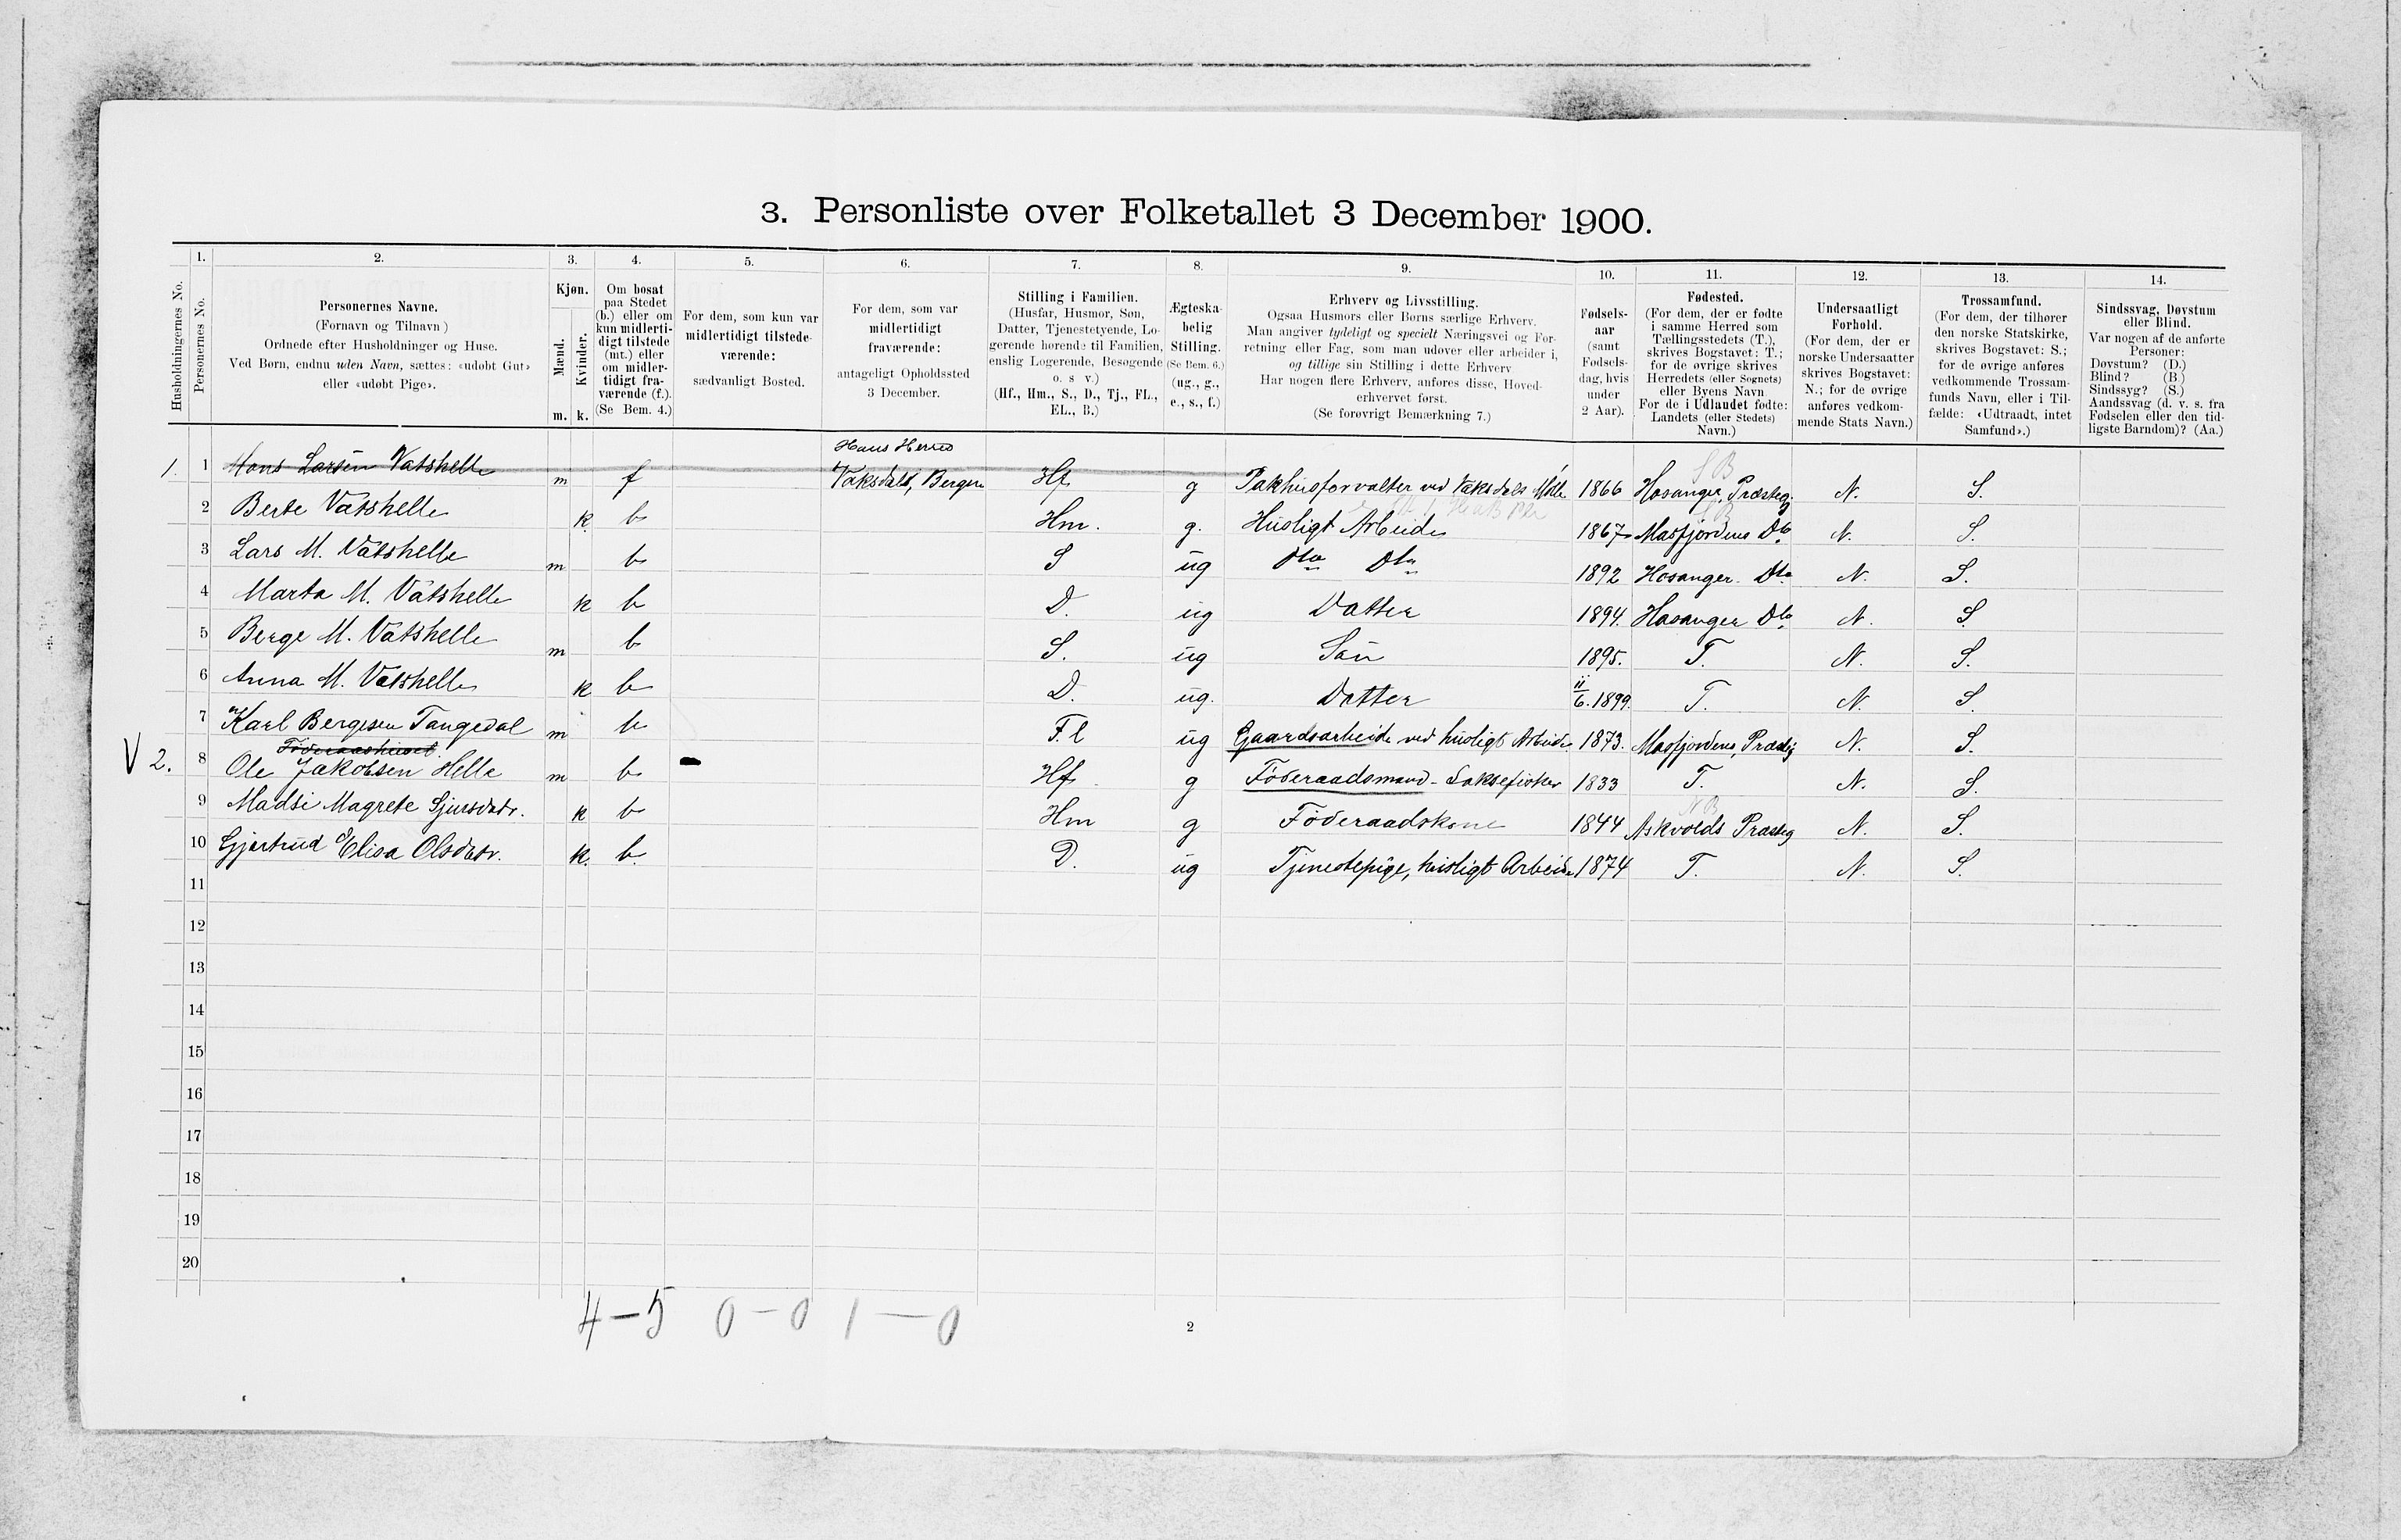 3. Personliste over Folketallet 3 December 1900.
1. 2. 3. 4. 5. 6. 7. 8. 9. 10. 11. 12. 13. 14.
Husholdningernes No.
Personernes No.
Personernes Navne.
(Fornavn og Tilnavn)
Ordnede efter Husholdninger og Huse.
Ved Børn, endnu uden Navn, sættes: «udøbt Gut»
eller «udøbt Pige».
Kjøn.
Mænd.
Kvinder.
m. k.
Om bosat
paa Stedet
(b.) eller om
kun midlerti-
digt tilstede
(mt.) eller
om midler-
tidigt fra-
værende (f.).
(Se Bem. 4.)
For dem, som kun var
midlertidigt tilstede-
værende:
sædvanligt Bosted.
For dem, som var
midlertidigt
fraværende:
antageligt Opholdssted
3 December.
Stilling i Familien.
(Husfar, Husmor, Søn,
Datter, Tjenestetyende, Lo-
gerende hørende til Familien,
enslig Logerende, Besøgende
o. s v.)
(Hf., Hm., S., D., Tj., FL.,
EL., B.)
Ægteska-
belig
Stilling.
(Se Bem. 6.)
(ug., g.,
e., s., f.)
Erhverv og Livsstilling.
Ogsaa Husmors eller Børns særlige Erhverv.
Man angiver tydeligt og specielt Næringsvei og For-
retning eller Fag, som man udøver eller arbeider i,
og tillige sin Stilling i dette Erhverv
Har nogen flere Erhverv, anføres disse, Hoved-
erhvervet først.
(Se forøvrigt Bemærkning 7.)
Fødsels-
aar
(samt
Fødsels-
dag, hvis
under
2 Aar).
Fødested.
(For dem, der er fødte
i samme Herred som
Tællingsstedets (T.),
skrives Bogstavet: T.;
for de øvrige skrives
Herredets (eller Sognets)
eller Byens Navn
For de i Udlandet fødte:
Landets (eller Stedets)
Navn.)
Undersaatligt
Forhold.
(For dem, der er
norske Undersaatter
skrives Bogstavet:
N.; for de øvrige
anføres vedkom-
mende Stats Navn.)
Trossamfund.
(For dem, der tilhører
den norske Statskirke,
skrives Bogstavet: S.;
for de øvrige anføres
vedkommende Trossam-
funds Navn, eller i Til-
fælde: «Udtraadt, intet
Samfund».)
Sindssvag, Døvstum
eller Blind.
Var nogen af de anførte
Personer:
Døvstum? (D.)
Blind? (B.)
Sindssyg? (S.)
Aandssvag (d. v. s. fra
Fødselen eller den tid-
ligste Barndom)? (Aa.)
Haus Herred
S B
1. 1 Mons Larsen Vatshelle m f Vaksdal, Bergen Hf g Pakhusforvalter ved Vaksdals Mølle 1866 Hosanger, Præsteg. N. S.
2 Berte Vatshelle k b Hm. g. Husligt Arbeide 1867 Masfjordens Do N. S.
3 Lars M. Vatshelle m b S ug Dto Dto 1892 Hosanger. Dto N. S.
4 Marta M. Vatshelle k b D. ug Datter 1894. Hosanger Do N. S.
5 Berge M. Vatshelle m b S. ug Søn 1895. T. N. S.
6 Anna M. Vatshelle k b D. ug. Datter 11/6.1899. T. N. S.
7 Karl Bergesen Tangedal m b F.l ug Gaardsarbeide ved husligt Arbeide 1873. Masfjordens, Præstg N. S.
Föderaashuset.
V 2. 8 Ole Jakobsen Helle m b Hf g Föderaadsmand - Laksefisker 1833 T. N. S.
9 Madsi Magrete Sjursdatr. k b Hm g Föderaadskone 1844 Askvolds Præsteg N. S.
10 Gjertrud Elisa Olsdatr. k. b. D. ug Tjenestepige, husligt Arbeide 1874 T. N. S.
11
12
13
14
15
16
17
18
19
20
4-5 0-0 1-0
2